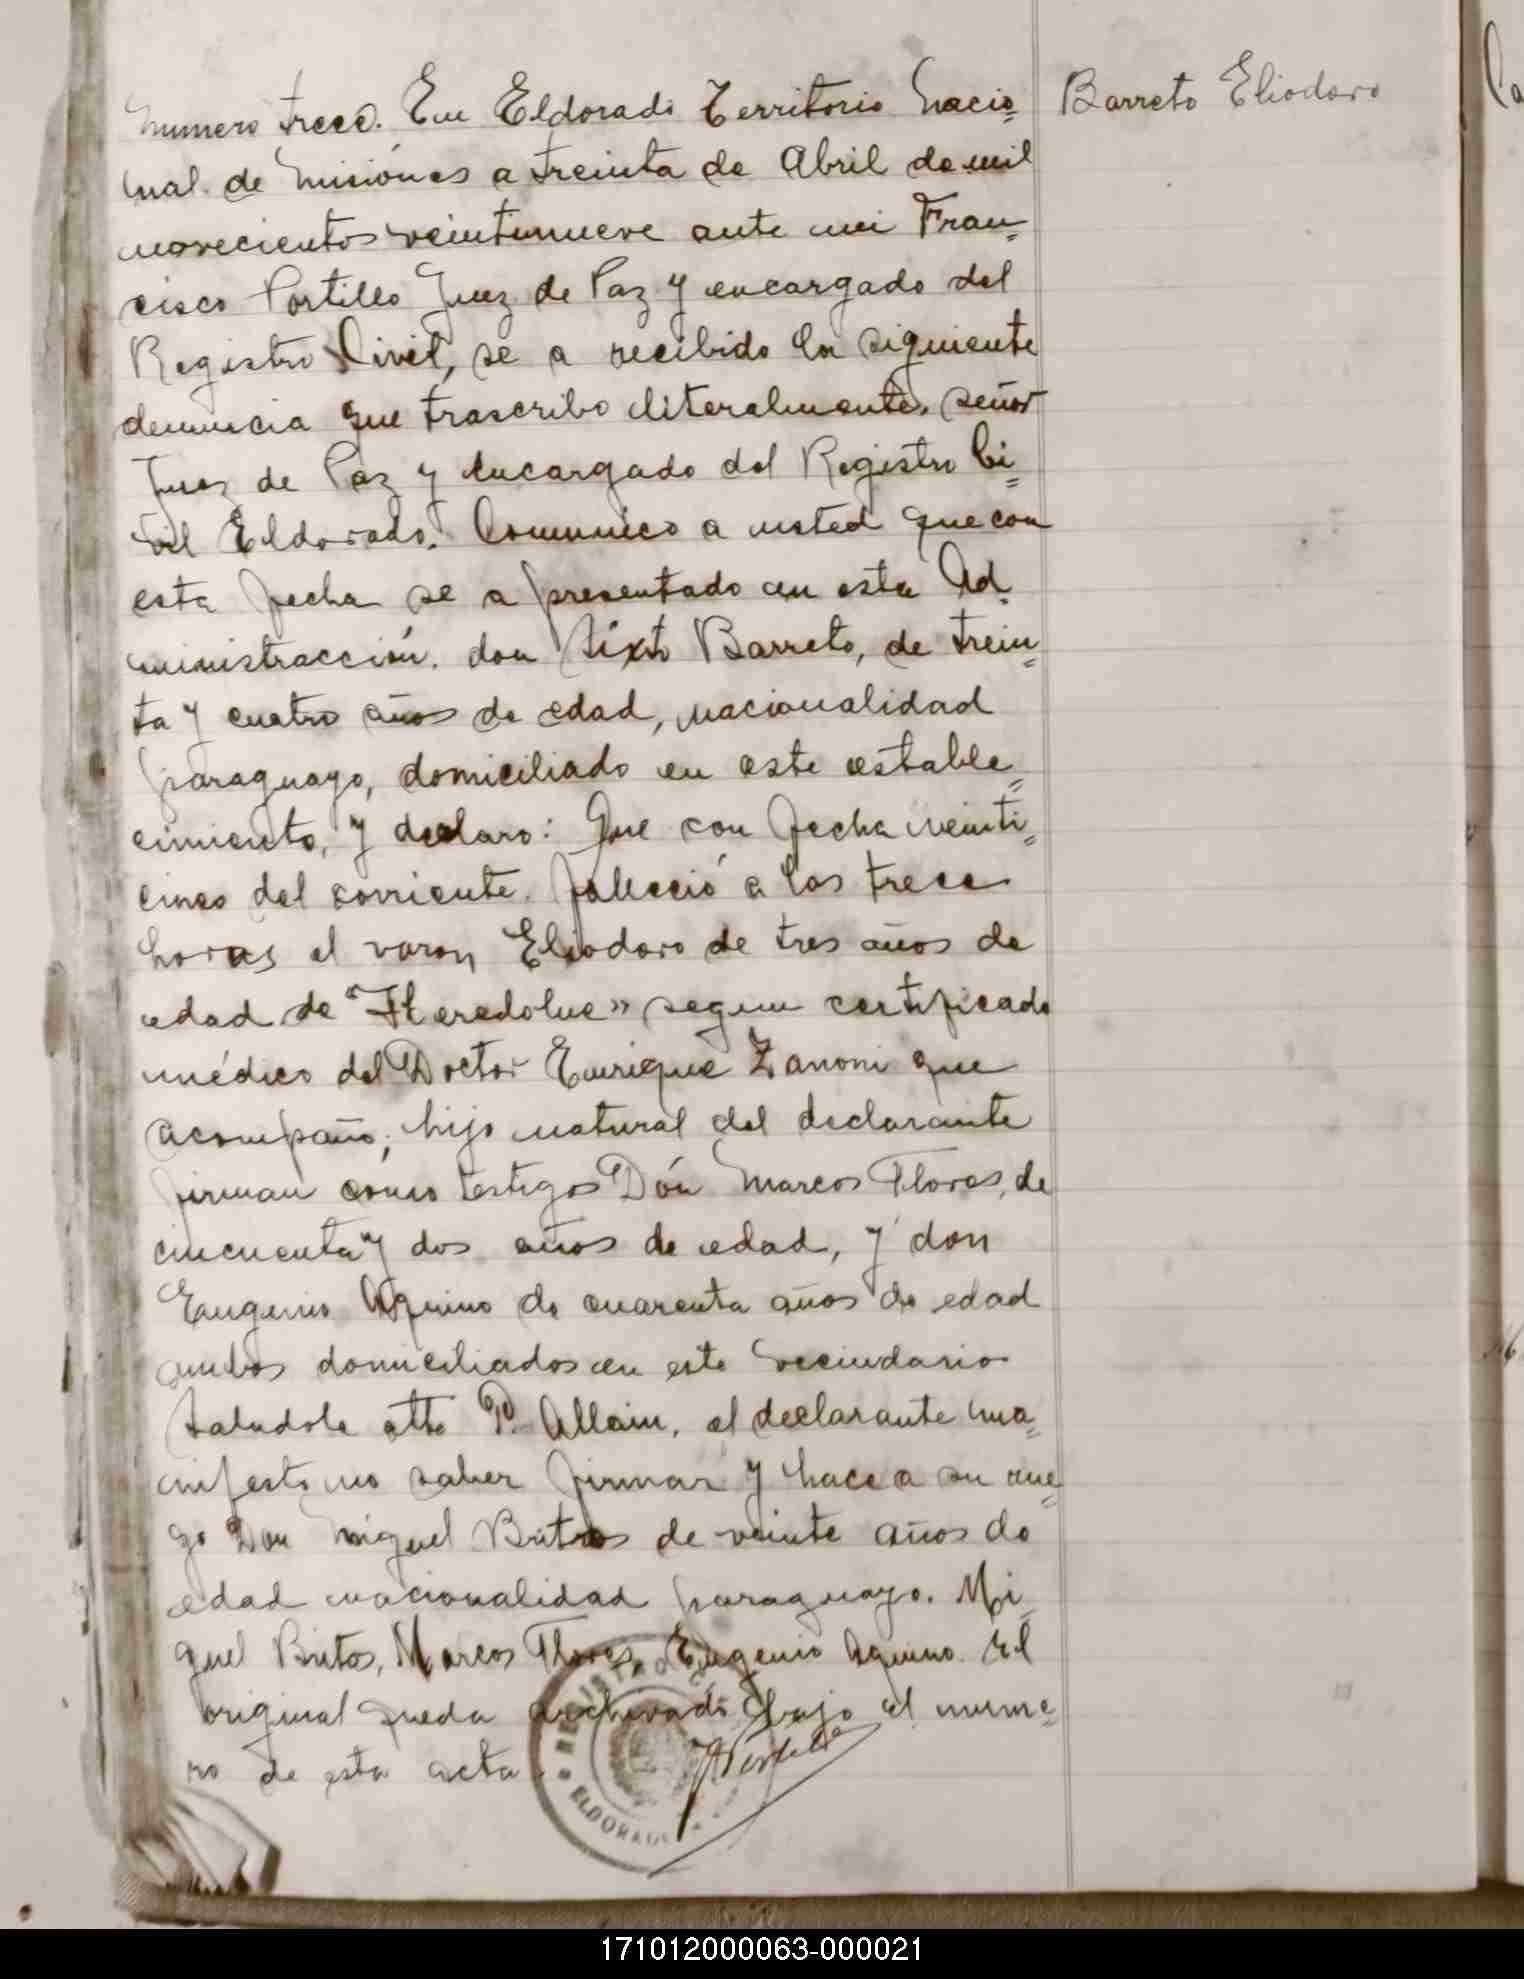 Numero trece. En Eldorado Territorio Nacio=
nal de Misiónes a treinta de Abril de mil
novecientos veintinueve ante mi Fran=
cisco Portillo Juez de Paz y encargado del
Registro Civil, se a recibido la siguiente
denuncia que trascribo literalmente, señor
Juez de Paz y encargado del Registro Ci=
vil Eldorado. Comunico a usted que con
esta fecha se a presentado en esta Ad=
ministracción. don Sixto Barreto, de trein=
ta y cuatro años de edad, nacionalidad
paraguayo, domiciliado en este estable=
cimiento, y declaro: Que con fecha veinti=
cinco del corriente. falleció a las trece
horas el varon Eliodoro de tres años de
edad de "Heredolue" segun certificado
médico del Doctor Enrique Zanoni que
acompaño; hijo natural del declarante
firman cómo testigos Dón Marcos Flores, de
cincuenta y dos años de edad, y don
Eugenio Aquino de cuarenta años de edad
ambos domiciliados en este vecindario
Saludole atto P. Allain, el declarante ma=
nifesto no saber firmar y hace a su rue=
go Don Miguel Britos de veinte años de
edad nacionalidad paraguayo. Mi=
guel Britos, Marcos Flores, Eugenio Aquino. El
original queda archivado bajo el nume=
ro de esta acta.
Barreto Eliodoro
REGISTRO
ELDORADO
171012000063-000021